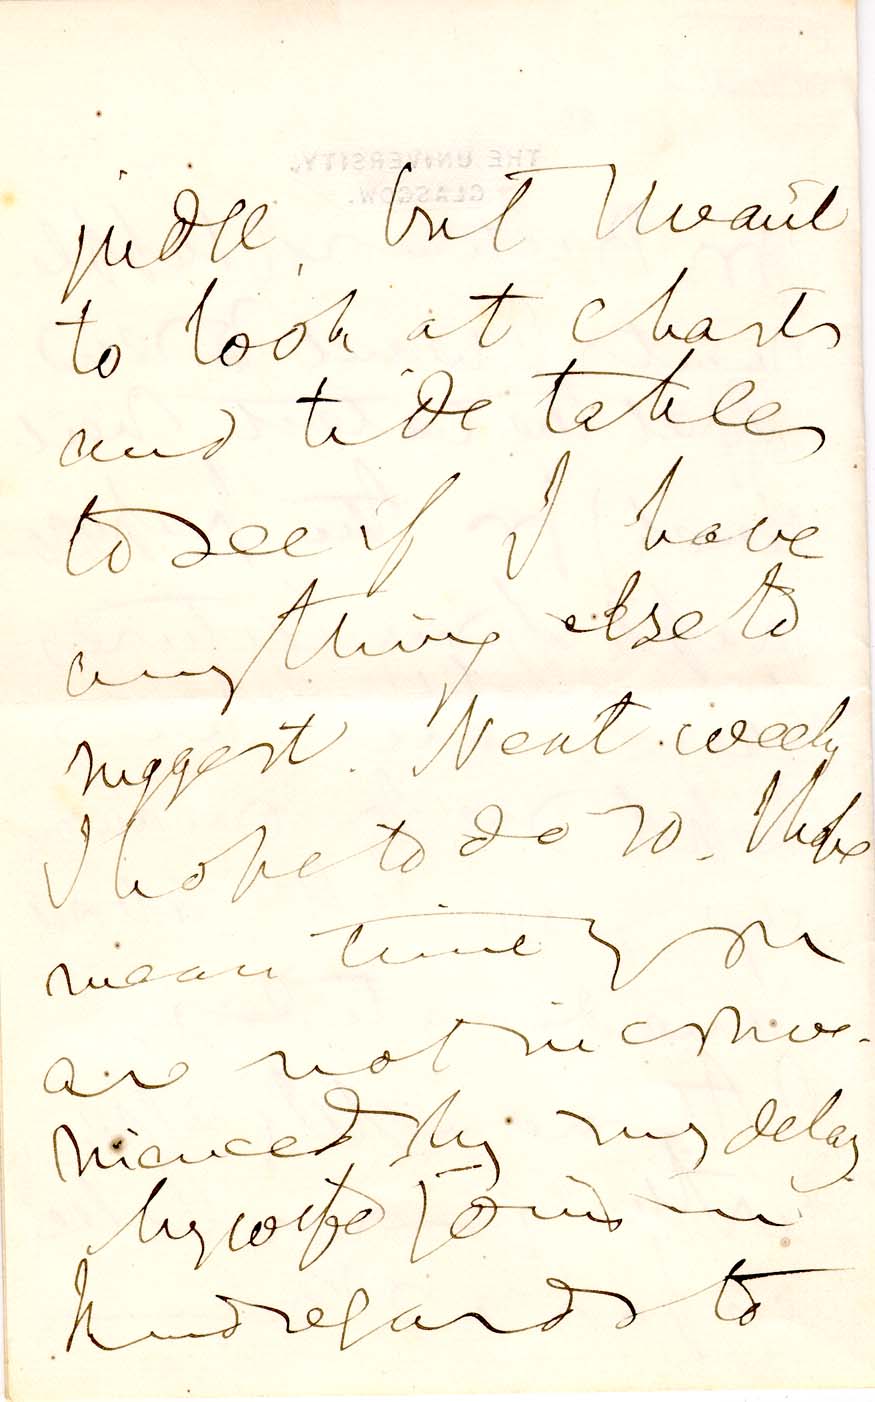 THE UNIVERSITY,
GLASGOW.
judge, but I want
to look at charts
and tide tables
to see if I have
anything else to
suggest. Next week
I hope to do so. I hope
mean time you
are not inconve-
nienced by my delay
My wife joins in
kind regards to